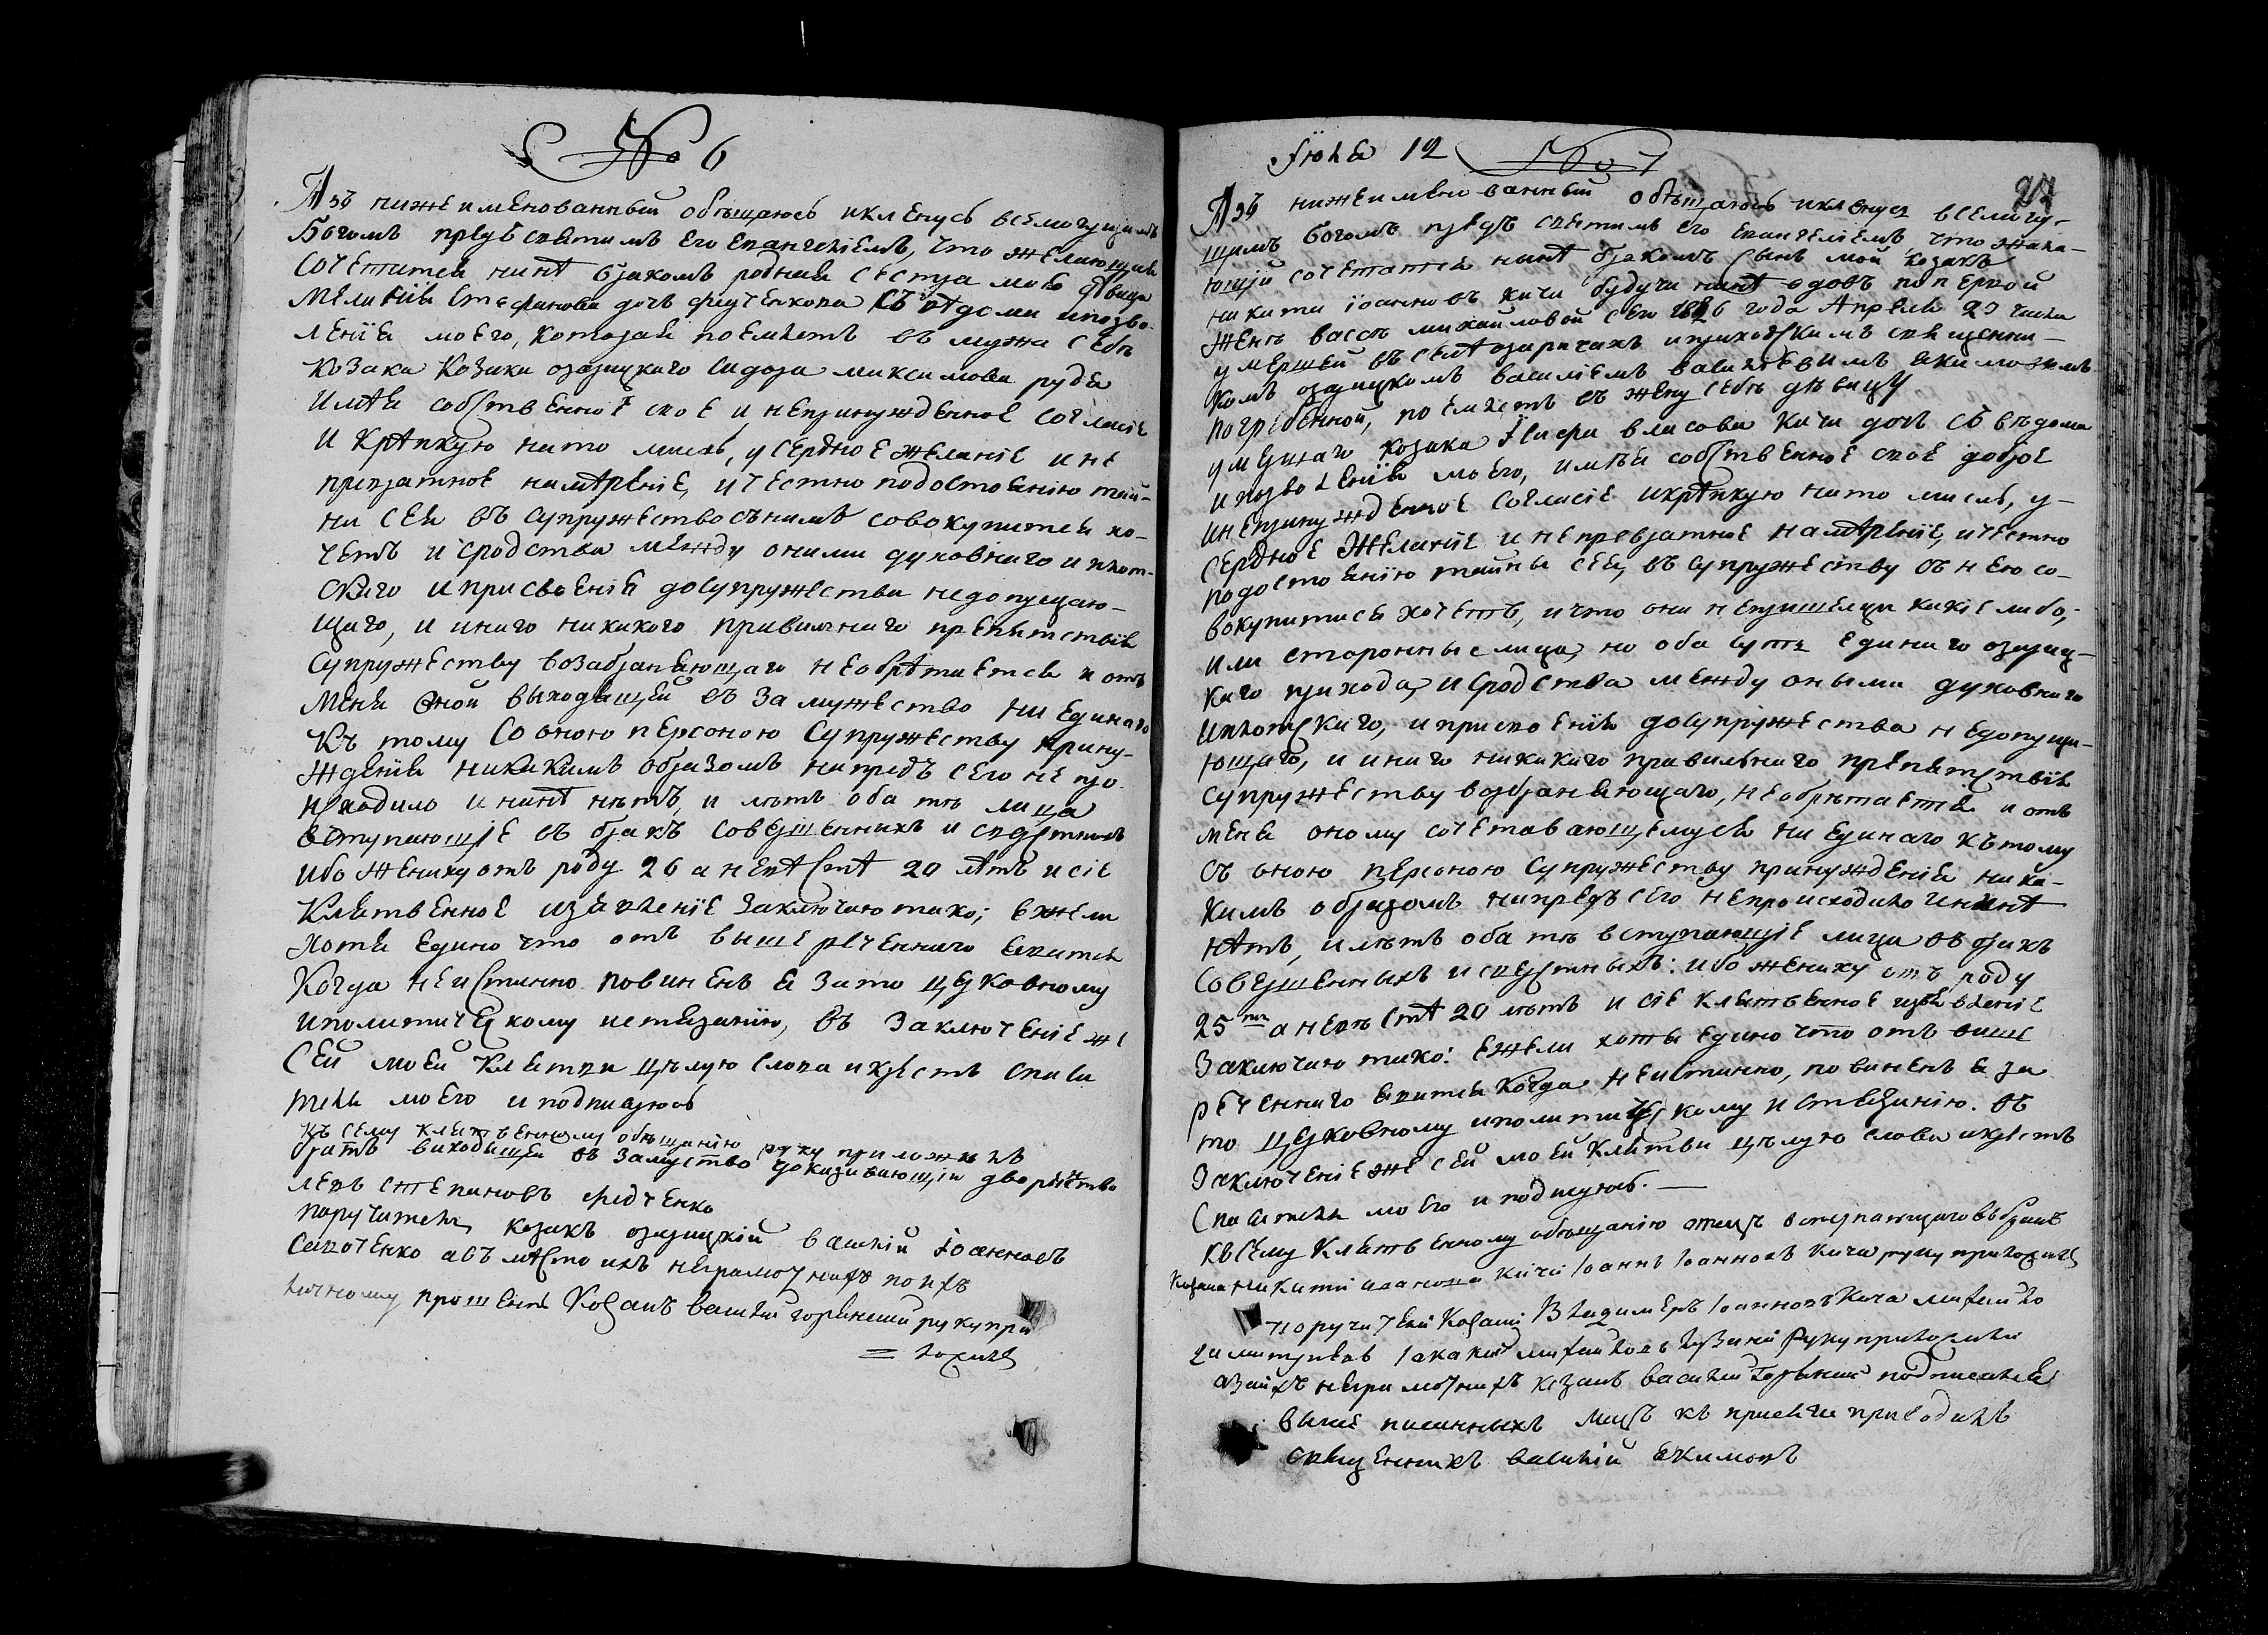 № 6
Азъ нижеименованный обѣщаюсь и кленусь всемогущимъ
Богомъ предъ святимъ его евангелiемъ, что желающая
сочетатся нинѣ бракомъ родная сестра моя дѣвица
Меланiя Стефанова дочь Федченкова съ вѣдома и позво-
ленiя моего, которая поемлетъ въ мужа себѣ
козака козака озерицкаго Сидора Максимова Руда
имѣя собственное свое и непринужденное согласiе
и крѣпкую на то мысль, усердное желанiе и не
превратное намѣренiе, и честно по достоянiю тай-
ни сея въ супружество съ нимъ совокупится хо-
четъ и сродства между оними духовнаго и плот-
скаго и присвоенiя до супружества недопущаю-
щаго, и инаго никакого правилнаго препятствiя
супружеству возбраняющаго не обрѣтается и отъ
меня оной выходящей въ замужество ни единаго
къ тому со оною персоною супружеству прину-
жденiя никакимъ образомъ напредъ сего не про-
исходило и нинѣ нѣтъ, и лѣтъ оба тѣ лица
вступающiе въ бракъ совершеннихъ и средстнихъ
ибо жениху отъ роду 26 а невѣстѣ 20 лѣтъ и сiе
клятвенное изъявленiе заключаю тако; ежели
хотя едино что отъ вышереченнаго явится
когда неистинно повиненъ я за то церковному
и политическому истязанiю, въ заключенiе же
сей моей клятви цѣлую слова и крестъ Спаси
теля моего и подписуюсь
къ сему клятвенному обѣщанiю руку приложилъ
братъ виходящей въ замуство доказивающiй дворянство
Левъ Степановъ Федченко
поручитель козакъ озерицкiй Василiй Iоанновъ
Савченко а въ мѣсто ихъ неграмотнихъ по ихъ
личному прошенiю козакъ Василий Горянский руку при
= ложилъ
Iюня 12 № 7
27
Азъ нижеименованный обѣщаюсь и кленусь всемогу-
щимъ Богомъ предъ святимъ его евангелiемъ, что жела-
ющiй сочетатся нинѣ бракомъ сынъ мой козакъ
Никита Iоанновъ Кича будучи нинѣ вдовъ по первой
женѣ Вассѣ Михайловой сего 1826 года Апреля 29 числа
умершей въ селѣ Озеричахъ и приходскимъ священни-
комъ озерицкомъ Василiемъ Василiевимъ Якимовимъ
погребенной, поемлетъ въ жену себѣ дѣвицу
умершаго козака Iосифа Власова Кичи дочь съ вѣдома
и позволенiя моего, имѣя собственное свое доброе
и непринужденное согласiе и крѣпкую на то мысль, у-
сердное желанiе и непревратное намѣренiе, и честно
по достоянiю тайны сея, въ супружеству съ нею со-
вокупитися хочетъ, и что они непришелци какiе либо,
или сторонные лица, но оба суть единаго озериц-
каго прихода, и сродства между оными духовнаго
и плотскаго, и присвоенiя до супружества недопуща-
ющаго, и инаго никакаго правильнаго препятствiя
супружеству возбраняющаго, не обрѣтается и отъ
меня оному сочетавающемуся ни единаго къ тому
съ оною персоною супружеству принужденiя ника-
кимъ образомъ напредъ сего не происходило и нинѣ
нѣтъ, и лѣтъ оба тѣ вступающiе лица въ бракъ
совершенныхъ и средстныхъ: ибо жениху отъ роду
25ть а невѣстѣ 20 лѣтъ и сiе клятвенное изъявленiе
заключаю тако: ежели хотя едино что отъ више
реченнаго явится когда неистинно, повиненъ я за
то церковному и политическому истязанiю. въ
заключенiе же сей моей клятви цѣлую слова и крестъ
Спасителя моего и подписуюсь. —
къ сему клятвенному обѣщанiю отецъ вступающаго въ бракъ
козака Никити Иванова Кичи Iоаннъ Iоанновъ Кича руку приложилъ
поручителi козаки Владимеръ Iоанновъ Кича
руку приложили
а за ихъ неграмотнихъ козакъ Василий Горянский подписался
выше писанныхъ лицъ къ присяги приводилъ
священникъ Василiй Якимовъ